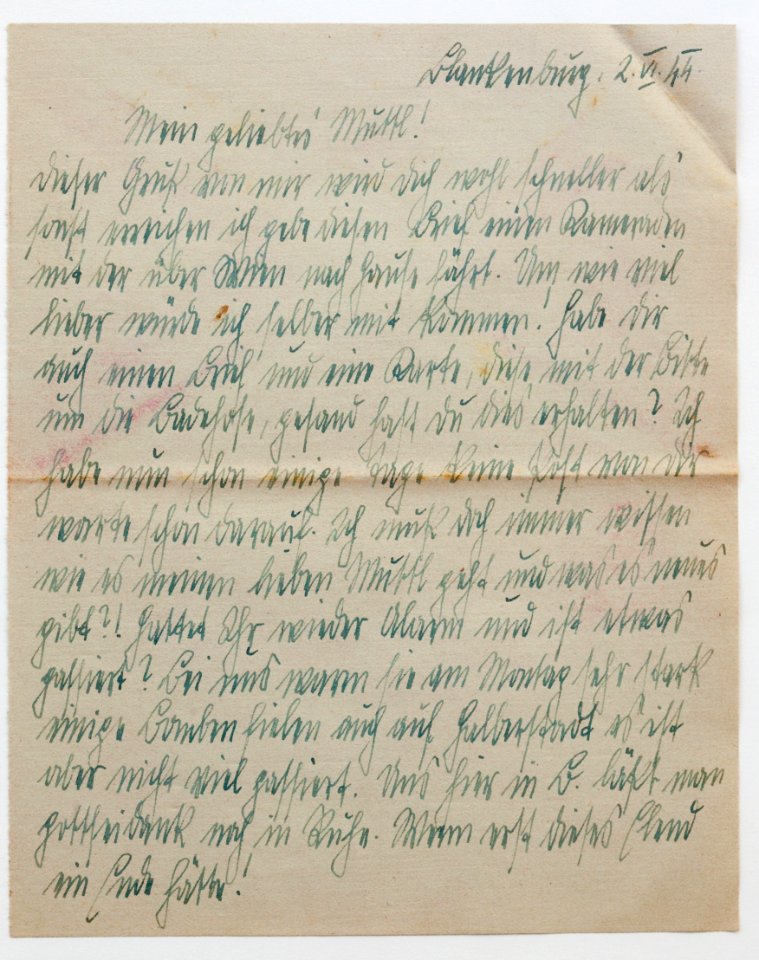 Blankenburg. 2.VI.44.
Mein geliebtes Muttl!
dieser Gruß von mir wird dich wohl schneller als
sonst erreichen ich gebe diesen Brief einen Kameraden
mit der über Wien nach Hause fährt. Um wie viel
lieber würde ich selber mit kommen! Habe dir
auch einen Brief und eine Karte, diese mit der Bitte
um die Badehose, gesand hast du dies erhalten? Ich
habe nun schon einige Tage keine Post von dir
warte schon darauf. Ich muß doch immer wissen
wie es meinen lieben Muttl geht und was es neues
gibt?! Hattet Ihr wieder Alarm und ist etwas
passiert? Bei uns warm sie am Montag sehr stark
einige Bomben fielen auch auf Halberstadt es ist
aber nicht viel passiert. Uns hier in B. läßt man
gottseidank noch in Ruhe. Wenn erst dieses Elend
ein Ende hätte!